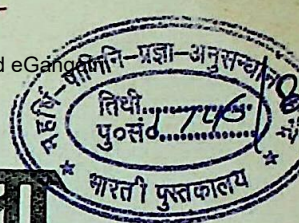 d eGangotri
महर्षि-पाणिनि-प्रज्ञा-अनुसन्धान
तिथी..............
पु०सं० 1745
* भारती पुस्तकालय *